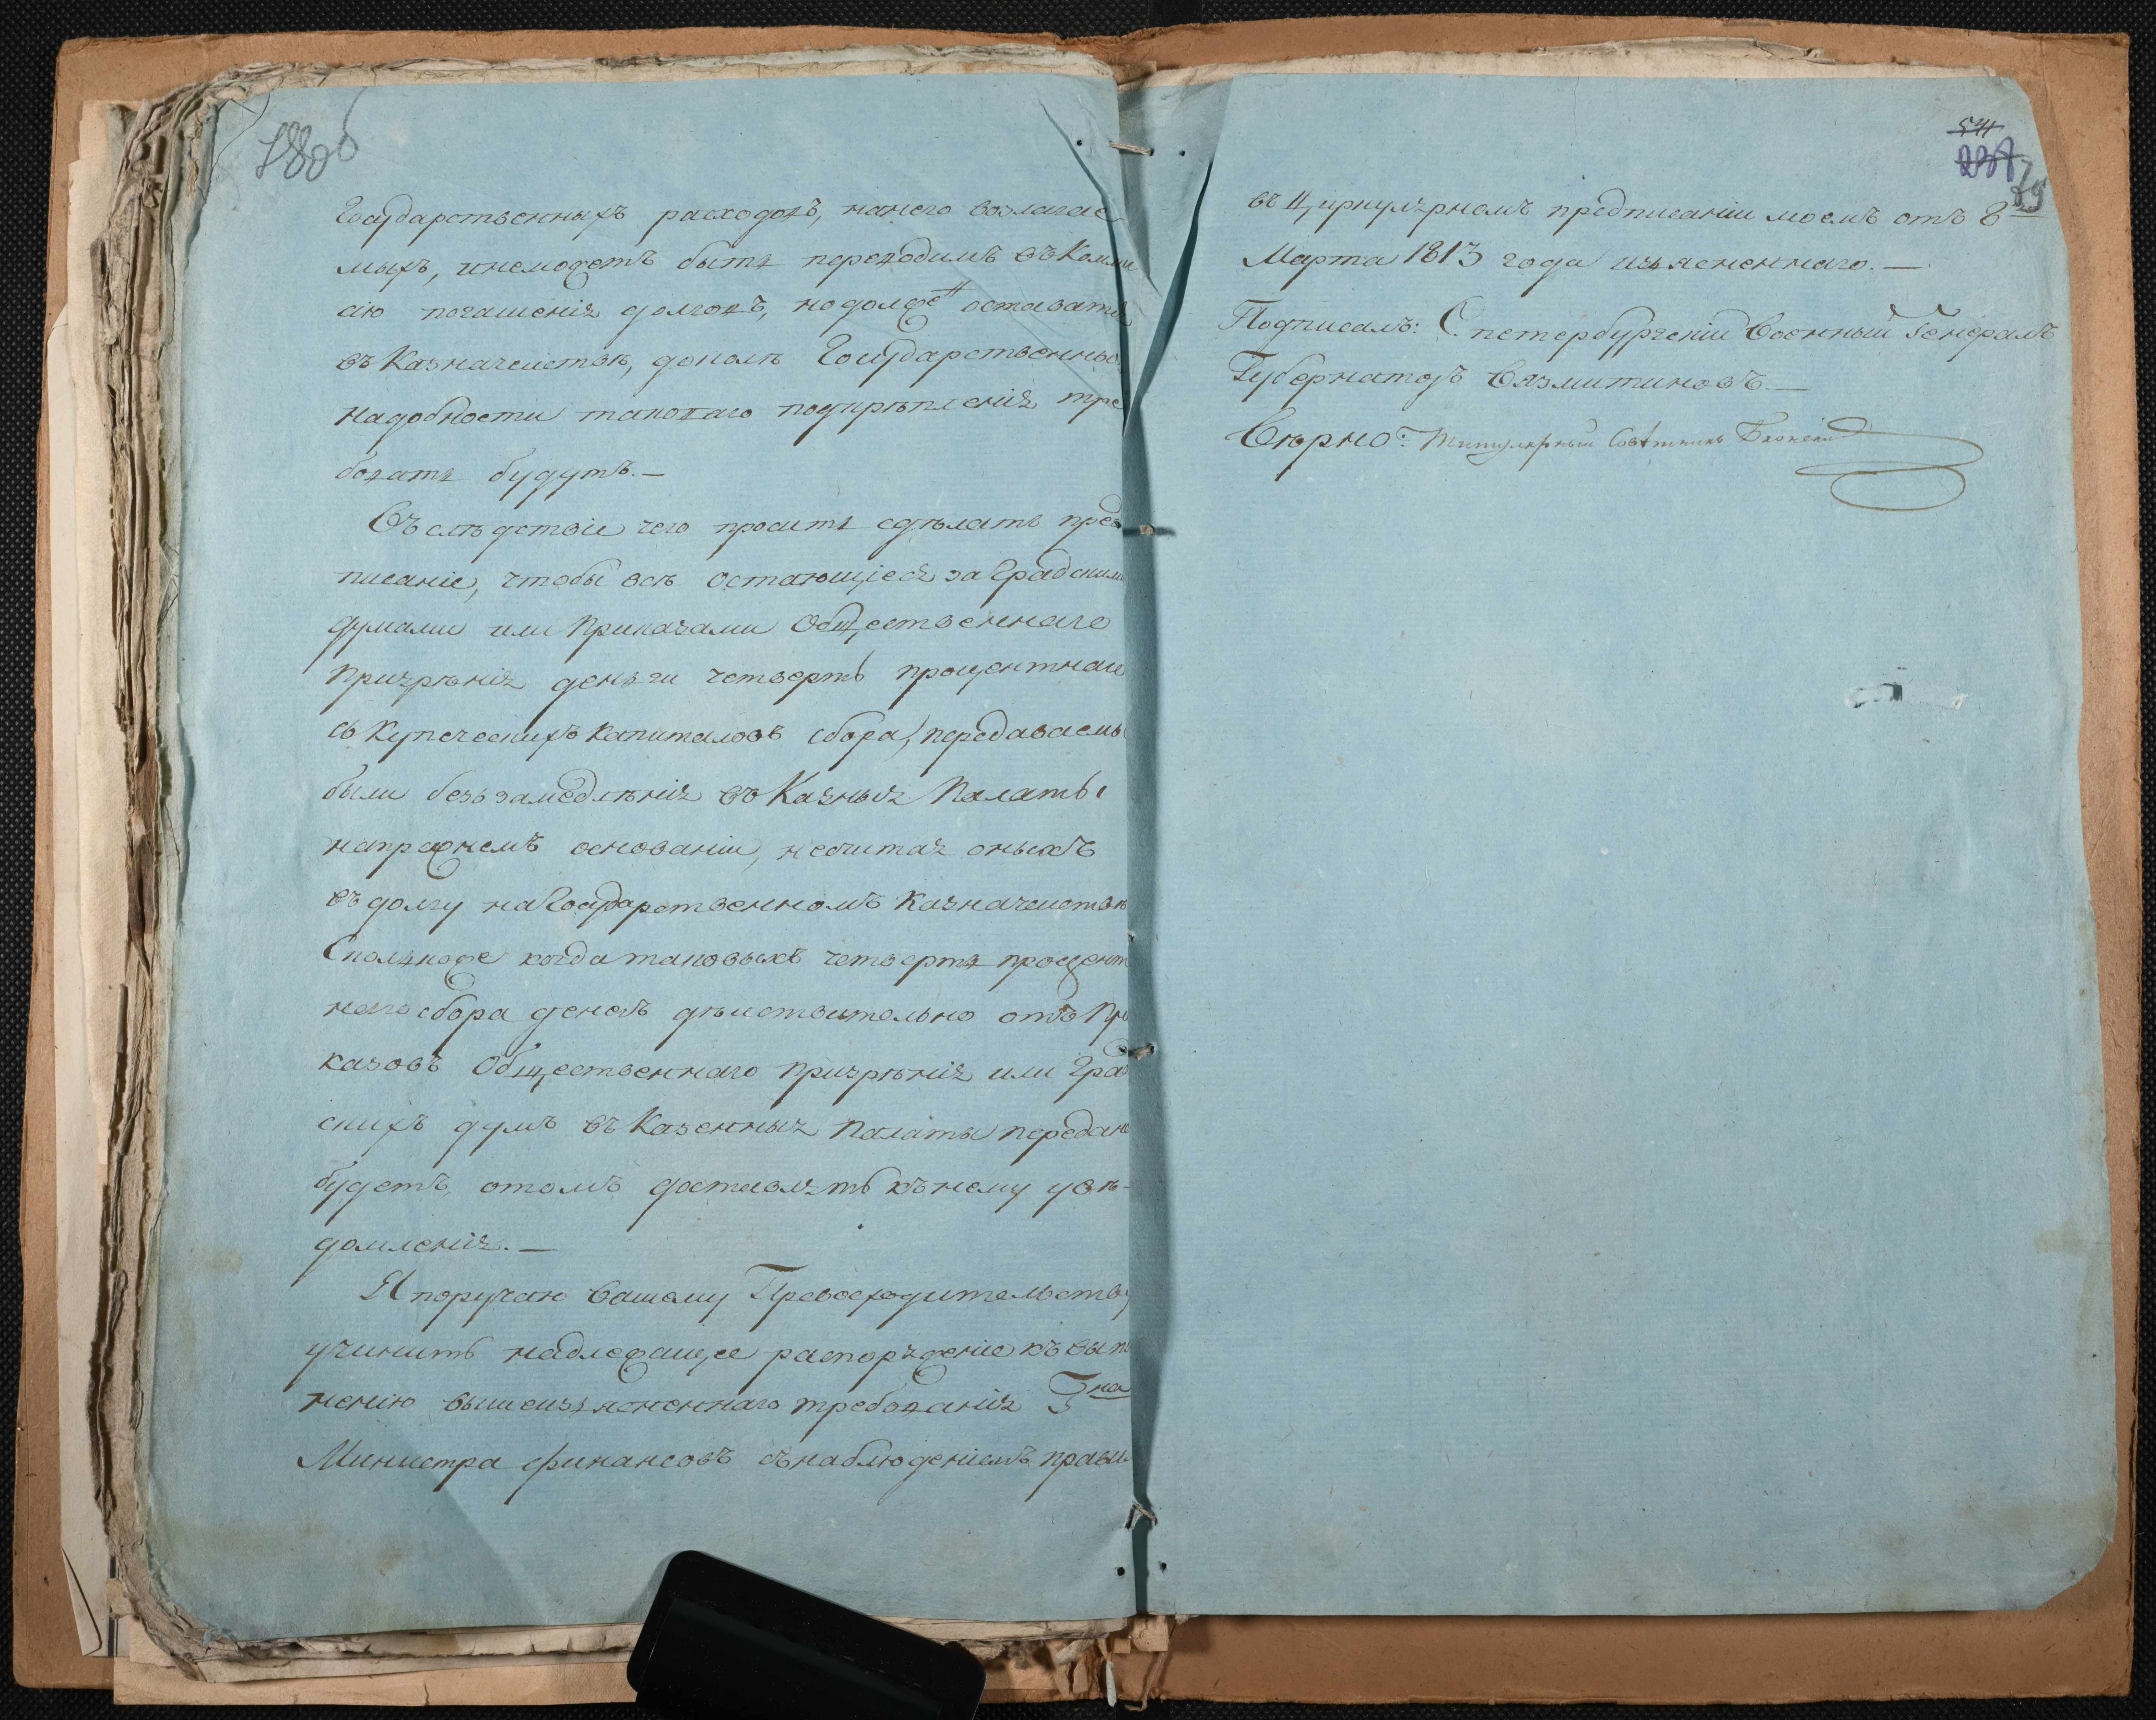 78об
Государственныхъ расходовъ, нанего возлагае
мыхъ, инеможетъ быть переводимъ въ Комми
сію погашенія долговъ, но долженъ оставаться
въ Казначействѣ, доколѣ Государственныя
надобности таковаго подкрѣпленія тре
бовать будутъ.—
Въ слѣдствіе чего проситъ сдѣлать пред
писаніе, чтобы всѣ остающіеся за Градскими
думами или Приказами Общественнаго
Призрѣнія деньги четверть процентнаго
съ Купеческихъ Капиталовъ сбора, передаваемы
были безъ замедлѣнія въ Казныя Палаты
напрежнемъ основаніи, несчитая оныхъ
въ долгу на Государственномъ Казначействѣ
Сколькоже когда таковыхъ четверть процент
наго сбора денегъ дѣйствительно отъ При
казовъ Общественнаго Призрѣнія или Град
скихъ думъ въ Казенныя Палаты передано
будетъ, отомъ доставлять къ нему увѣ-
домленія.—
Я поручаю Вашему Превосходительству
учинить надлежащее распоряженіе къ выпо
ненію вышеизъясненнаго требованія Гна
Министра Финансовъ съ наблюденіемъ прави
541
237
79
въ Циркулярномъ предписаніи моемъ отъ 8го
Марта 1813 года изъясненнаго.—
Подписалъ: С. петербургскій Военный Генералъ
Губернаторъ Вязмитиновъ.—
Вѣрно: Титулярный Совѣтникъ